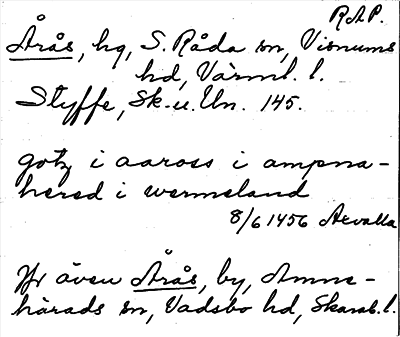 R.A.P.
Årås, hg, S. Råda sn, Visnums
hd, Värml. l.
Styffe, Sk. u. Un. 145.
gotz i aaross i ampna-
hered i wermeland
8/6 1456 Arvalla
Jfr även Årås, by, Amne-
härads sn, Vadsbo hd, Skarab. l.